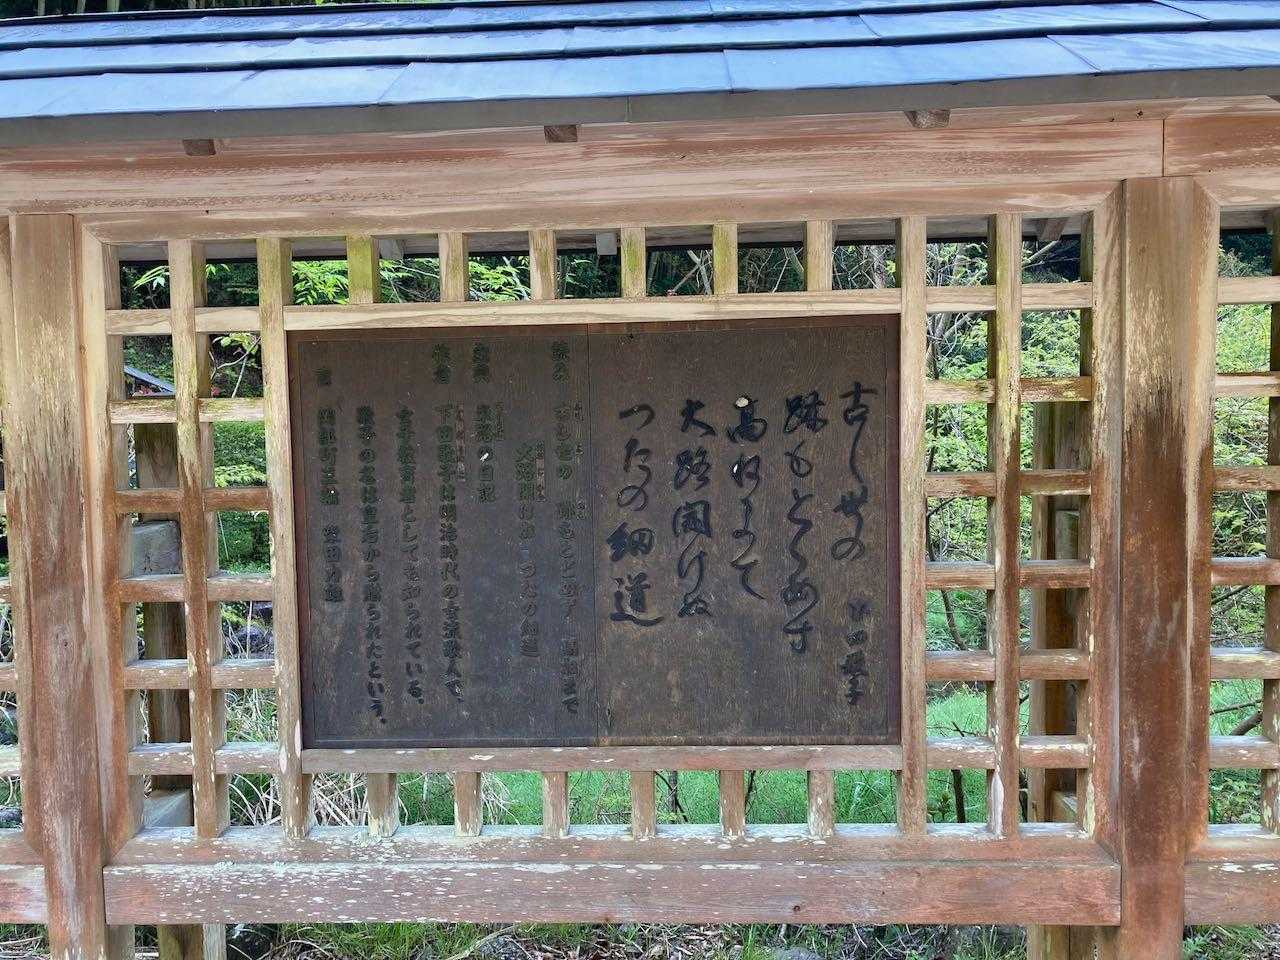 古し世の
下田歌子
跡もとゝめす
高ねまて
大路開けぬ
つたの細道
読み
古し世の 跡もとどめず 高根まで
大路開けぬ つたの細道
出典
東路の日記
作者
下田歌子は明治時代の宮廷歌人で、
女子教育者としても知られている。
歌子の名は皇后から賜られたという。
書